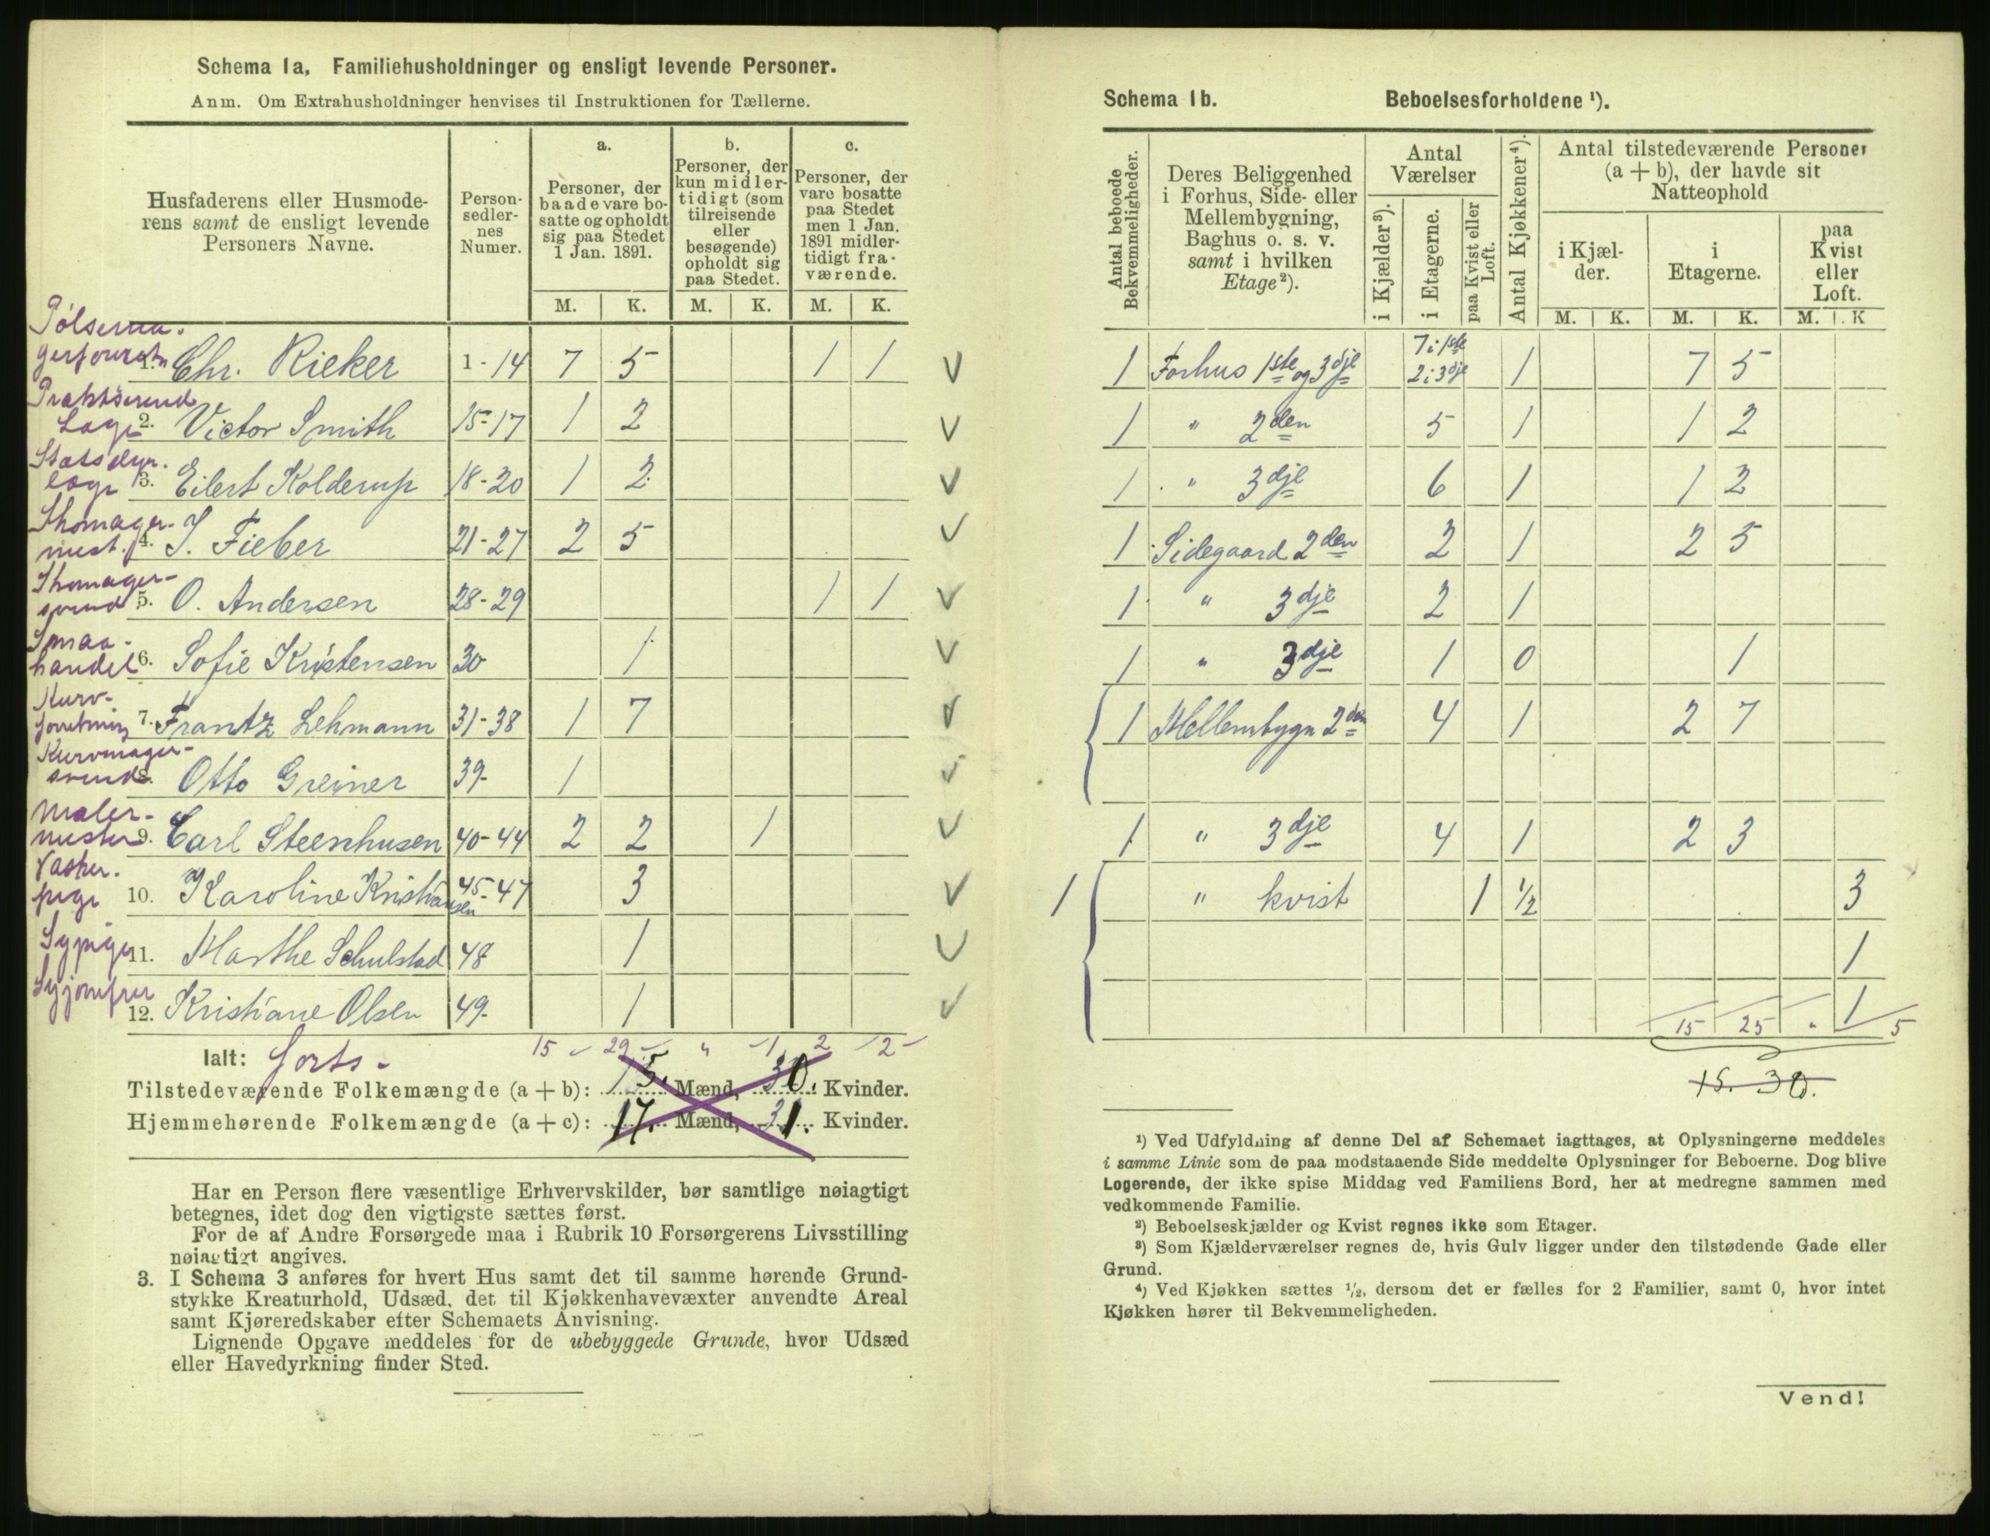 Schema 1a. Familiehusholdninger og ensligt levende Personer.
Anm. Om Extrahusholdninger henvises til Instruktionen for Tællerne.
Husfaderens eller Husmoderens samt de ensligt levende Personers Navne.
Personsedlernes Numer.
a. Personer, der baade vare bosatte og opholdt sig paa Stedet 1 Jan. 1891.
b. Personer, der kun midlertidigt (som tilreisende eller besøgende) opholdt sig paa Stedet.
c. Personer, der vare bosatte paa Stedet men 1 Jan. 1891 midlertidigt fraværende.
M. K. M. K. M. K.
Pølsema-
1. Chr. Rieker 1-14 7 5 1 1
Praktserend
Læge 2. Victor Smith 15-17 1 2
Statsdyr-
læge 3. Eilert Kolderup 18-20 1 2
Skomager-
mest. 4. J. Fieber 21-27 2 5
Skomager-
svend 5. O. Andersen 28-29 1 1
Smaa-
handel 6. Sofie Kristensen 30 1
Kurv-
forretning 7. Frantz Lehmann 31-38 1 7
Kurvmager-
svend 8. Otto Greiner 39- 1
Maler-
mester 9. Carl Steenhusen 40-44 2 2 1
Vasker-
pige 10. Karoline Kristiansen 45-47 3
Sypige 11. Marthe Schulstad 48 1
Syjomfru 12. Kristiane Olsen 49- 1
Ialt: Forts- 15 - 29 - " - 1 2 - 2 -
Tilstedeværende Folkemængde (a + b): 15. Mænd, 30. Kvinder.
Hjemmehørende Folkemængde (a + c): 17. Mænd, 31. Kvinder.
Har en Person flere væsentlige Erhvervskilder, bør samtlige nøiagtigt
betegnes, idet dog den vigtigste sættes først.
For de af Andre Forsørgede maa i Rubrik 10 Forsørgerens Livsstilling
nøiagtigt angives.
3. I Schema 3 anføres for hvert Hus samt det til samme hørende Grund-
stykke Kreaturhold, Udsæd, det til Kjøkkenhavevæxter anvendte Areal
samt Kjøreredskaber efter Schemaets Anvisning.
Lignende Opgave meddeles for de ubebyggede Grunde, hvor Udsæd
eller Havedyrkning finder Sted.
Schema 1b. Beboelsesforholdene ¹).
Antal beboede Bekvemmeligheder.
Deres Beliggenhed i Forhus, Side- eller Mellembygning, Baghus o. s. v. samt i hvilken Etage ²).
Antal Værelser
i Kjælder ³).
i Etagerne.
paa Kvist eller Loft.
Antal Kjøkkener ⁴).
Antal tilstedeværende Personer (a + b), der havde sit Natteophold
i Kjælder.
i Etagerne.
paa Kvist eller Loft.
M. K. M. K. M. K
1 Forhus 1ste og 3dje 7 i 1ste 2 i 3dje 1 7 5
1 " 2den 5 1 1 2
1 " 3dje 6 1 1 2
1 Sidegaard 2den 2 1 2 5
1 " 3dje 2 1
1 " 3dje 1 0 1
1 Mellembygn 2den 4 1 2 7
1 " 3dje 4 1 2 3
1 " kvist 1 1/2 3
1
1
15 25 " 5
15. 30.
¹) Ved Udfyldning af denne Del af Schemaet iagttages, at Oplysningerne meddeles
i samme Linie som de paa modstaaende Side meddelte Oplysninger for Beboerne. Dog blive
Logerende, der ikke spise Middag ved Familiens Bord, her at medregne sammen med
vedkommende Familie.
²) Beboelseskjælder og Kvist regnes ikke som Etager.
³) Som Kjælderværelser regnes de, hvis Gulv ligger under den tilstødende Gade eller
Grund.
⁴) Ved Kjøkken sættes ¹/₂, dersom det er fælles for 2 Familier, samt 0, hvor intet
Kjøkken hører til Bekvemmeligheden.
Vend!